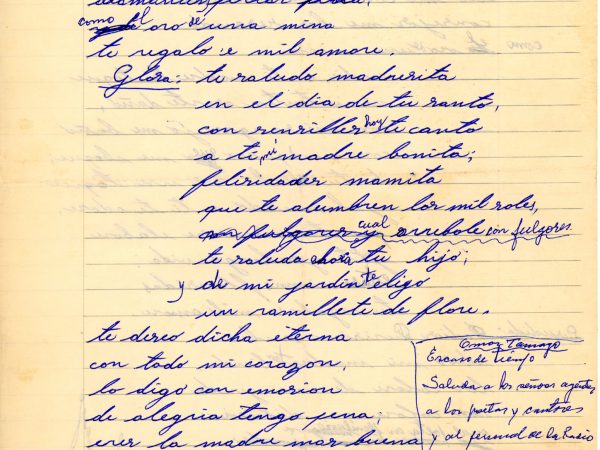 diamantes, perlas plata,
como el oro de una mina
te regalo e mil amore.
Glosa: te saludo madresita
en el dia de tu santo,
con sensilles hoy te canto
a ti mi madre bonita;
felisidades mamita
que te alumbren los mil soles,
cual arrebole con fulgores.
te saluda ahora tu hijo;
y de mi jardin te eligo
un ramillete de flore.
te deseo dicha eterna
con todo mi corazon,
lo digo con emosion
de alegria tengo sena;
eres la madre mas buena
Omar Tamayo
Escaso de tiempo
Saluda a los señores agentes
a los poetas y cantores
y al personal de la Radio